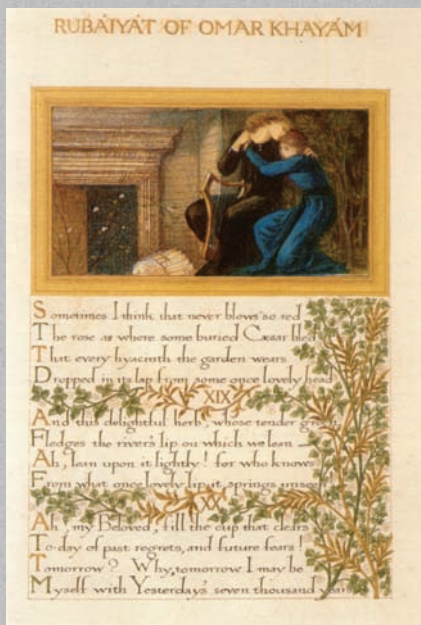 RUBÁIYÁT OF OMAR KHAYÁM
Sometimes I think that never blows so red
The rose as where some buried Cæsar bled
That every hyacinth the garden wears
Dropped in its lap from some once lovely head
XIX
And this delightful herb, whose tender green
Fledges the river's lip on which we lean
Ah, lean upon it lightly! for who knows
From what once lovely lip it springs unseen
XX
Ah, my Beloved, fill the cup that clears
To-day of past regrets, and future fears!
Tomorrow? Why, tomorrow I may be
Myself with Yesterday's seven thousand years